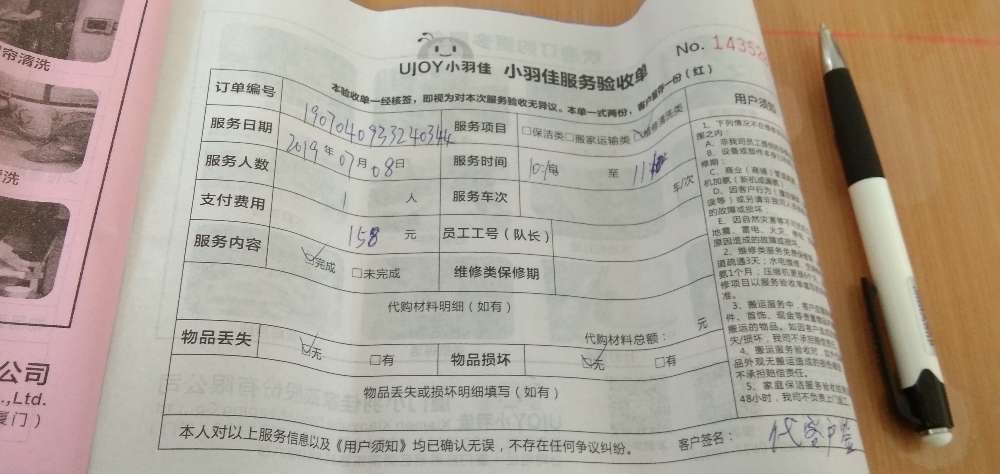 帘清洗
洗
公司
.,Ltd.
厦门）
UJOY小羽佳 小羽佳服务验收单
No. 14352
本验收单一经核签，即视为对本次服务验收无异议。本单一式两份，客户留存一份（红）
订单编号 1907040933240344 服务项目 □保洁类□搬家运输类
服务日期 2019年07月08日 服务时间 至
服务人数 1 人 服务车次 车/次
支付费用 158 元 员工工号（队长）
服务内容 完成 □未完成 维修类保修期
代购材料明细（如有）
代购材料总额： 元
物品丢失 无 □有 物品损坏 无 □有
物品丢失或损坏明细填写（如有）
本人对以上服务信息以及《用户须知》均已确认无误，不存在任何争议纠纷。
客户签名： 代客户签
用户须知
1、下列情况不在维修
围之内：
A、非我司员工
B、设备或部件本身
修期：
C、商业（商铺）
机加氨（新机或漏氨）
D、因客户行为
误等）或另请非我司人
的故障或损坏；
E、因自然灾害等不可
地震、雷电、火灾、
原因造成的故障或损坏。
2、维修类服务免费保修
道疏通3天；水电维修
氨1个月；压缩机更换
修项目以服务验收单填写
准。
3、搬运服务中，客户应
件、首饰、现金等贵重物品
搬运的物品。如因客户
失/损坏，我司不承担赔偿责
4、搬运服务验收时，
品外观无搬运造成的
不承担赔偿责任。
5、家庭保洁服务验收
48小时，我司不负责上门返工